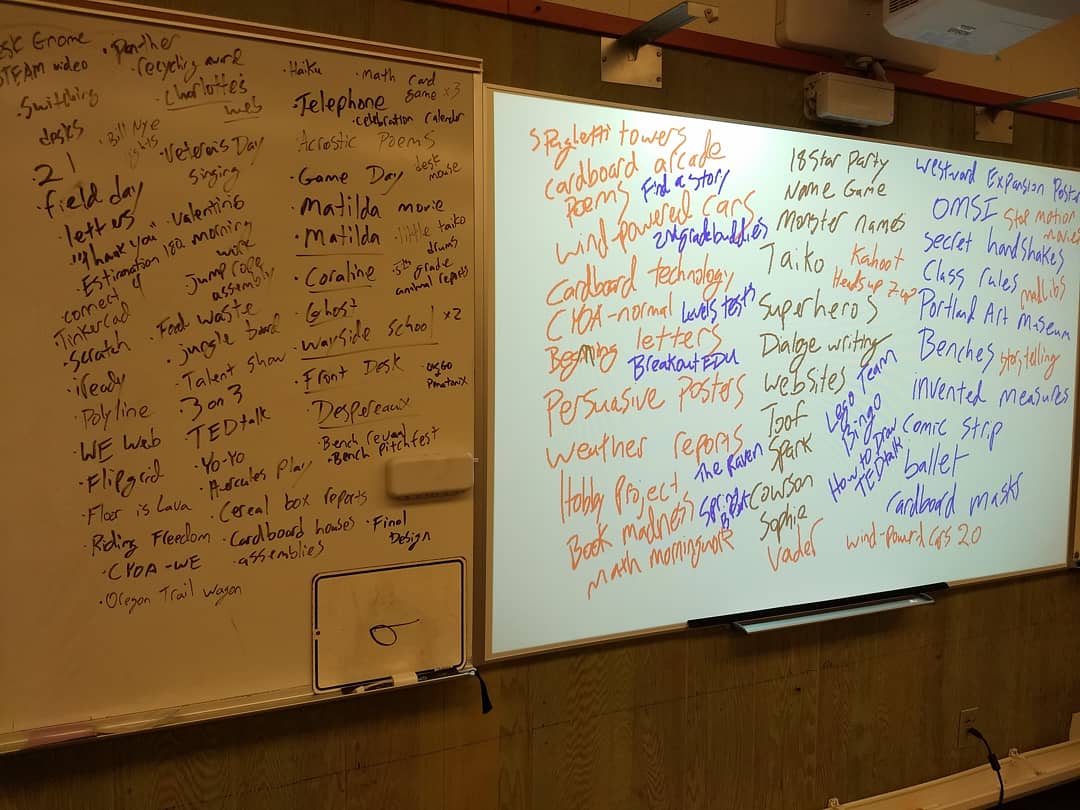 Desk Gnome
STEAM video
· Switching
desks
21
· field day
· letters
"Thank you"
· Estimation 180
connect 4
· Tinkercad
· Scratch
· iReady
· Polyline
· WE Web
· Flipgrid
· Floor is Lava
· Riding Freedom
· CYOA-WE
· Oregon Trail Wagon
· Panther
· recycling work
· Charlotte's
web
· Bill Nye
· Veteran's Day
singing
· Valentins
morning
work
· Jump rope
assembly
· Food waste
· jungle board
· Talent show
· 3 on 3
· TEDtalk
· Yo-Yo
· Hercules Play
· Cereal box reports
· Cardboard houses
· assemblies
· Haiku
· Telephone
· Acrostic Poems
· Game Day
· Matilda movie
· Matilda
· Coraline
· Ghost
· Wayside School x2
· Front Desk
· Despereaux
· Bench reveal
· Bench pitchfest
· Final
Design
· math card
game x3
· celebration calendar
desk
mouse
· little taiko
drums
· 5th grade
animal reports
6
Spaghetti towers
cardboard arcade
Poems
Find a story
wind powered cars
2nd grade buddies
Cardboard technology
CYOA-normal
Levels tests
Beginning letters
Breakout EDU
Persuasive Posters
weather reports
The Raven
Hobby Project
Book madness
Spring
math morningwork
18 Star Party
Name Game
Monster names
Taiko
Kahoot
Heads up 7up
Superheros
Dialoge writing
websites
Lego Team
Toof
Bingo
Spark
How to Draw
TEDtalk
Cowson
Sophie
Vader
wind-powerd cars 2.0
westward Expansion Poster
OMSI
Stop motion
movies
secret handshakes
Class rules
madlibs
Portland Art Museum
Benches
storytelling
invented measures
Comic Strip
ballet
cardboard masks